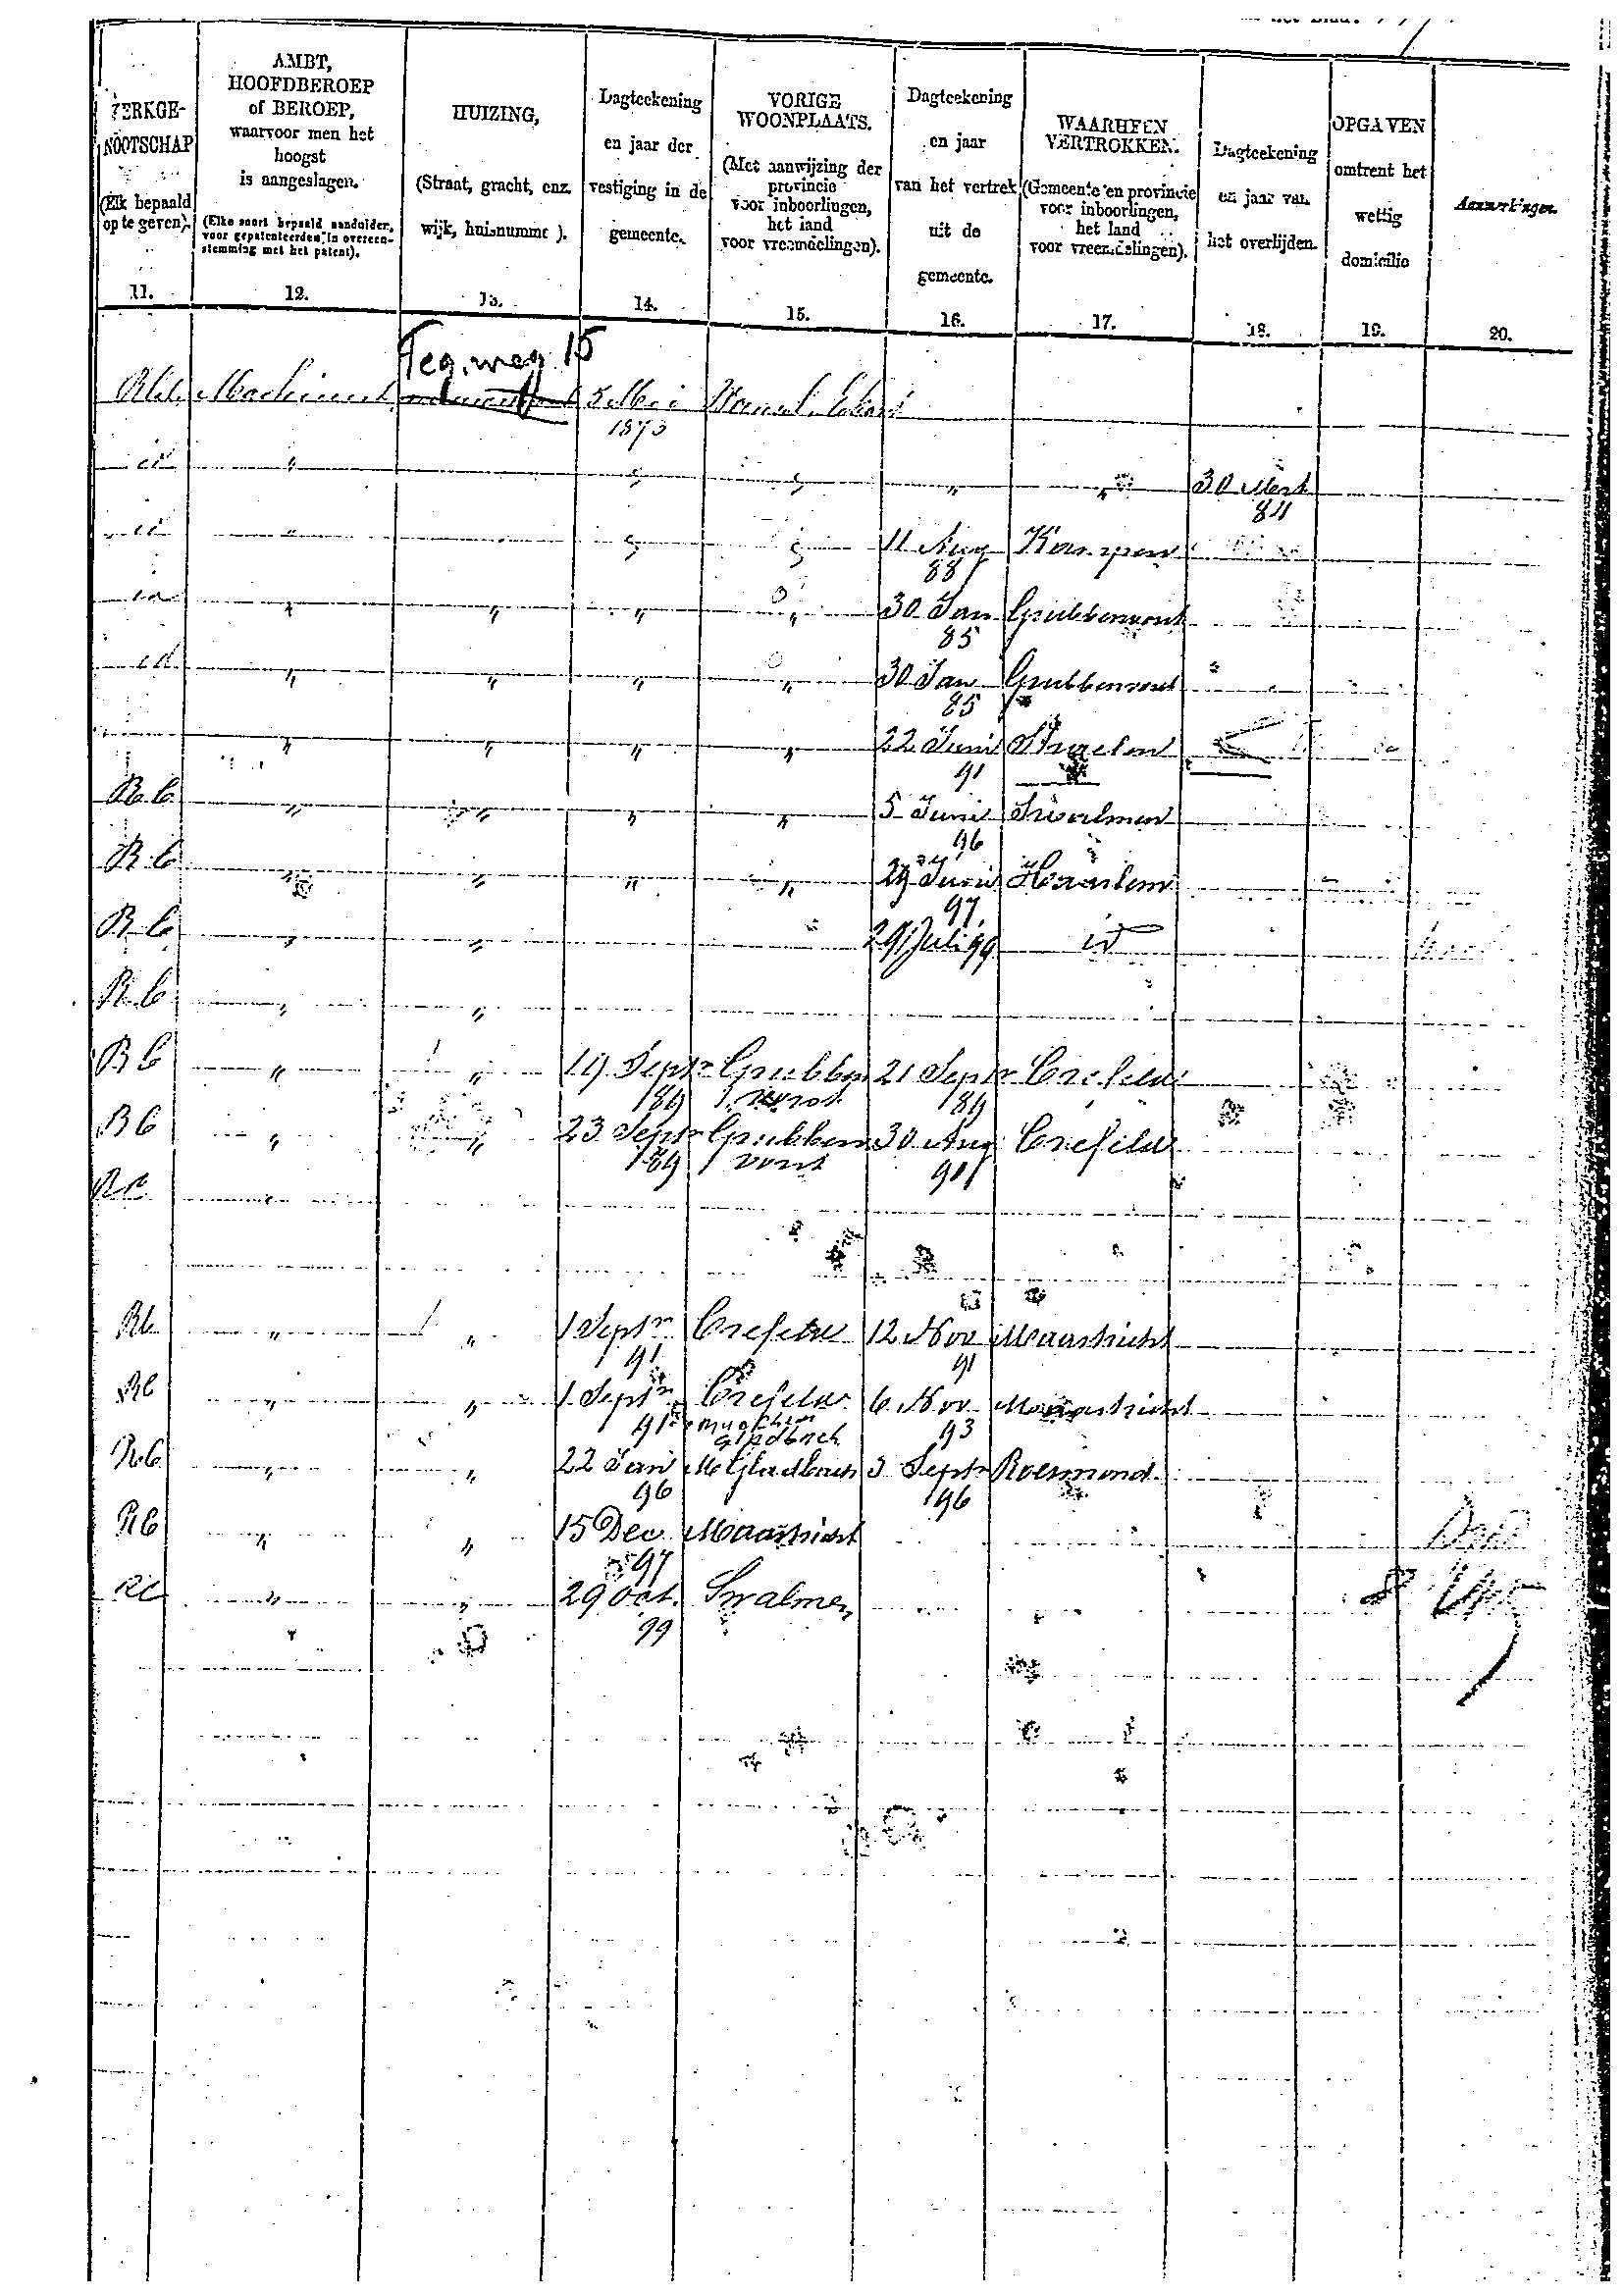 KERKGE-
NOOTSCHAP
(Elk bepaald
op te geven).
11.
AMBT,
HOOFDBEROEP
of BEROEP,
waarvoor men het
hoogst
is aangeslagen.
(Elke soort bepaald aanduiden,
voor gepatenteerden in overeen-
stemming met het patent).
12.
HUIZING,
(Straat, gracht, enz.
wijk, huisnummer).
13.
Dagteekening
en jaar der
vestiging in de
gemeente.
14.
VORIGE
WOONPLAATS.
(Met aanwijzing der
provincie
voor inboorlingen,
het land
voor vreemdelingen).
15.
Dagteekening
en jaar
van het vertrek
uit de
gemeente.
16.
WAARHEEN
VERTROKKEN.
(Gemeente en provincie
voor inboorlingen,
het land
voor vreemdelingen).
17.
Dagteekening
en jaar van
het overlijden.
18.
OPGAVEN
omtrent het
wettig
domicilie
19.
Aanmerkingen.
20.
Teg. weg 15
5 Mei
1873
" " " " 30 Mert
84
" 11 Aug Kampen
88
" " " " 30 Jan Grubbenvorst
85
" " " " 30 Jan Grubbenvorst
85
" " " " 22 Juni Straelen
91
R C " " " " 5 Juni Swalmen
96
R C " " " " 29 Juni Haarlem
97.
R C " " 29 Juli 99 id
R C " "
R C " " 19 Septr Grubben 21 Septr Crefeld
89 vorst 89
R C " " 23 Septr Grubben 30 Aug Crefeld
89 vorst 901
R C "
R C " " 1 Septr Crefeld 12 Nov Maastricht
91 91
R C " " 1 Septr Crefeld 6 Nov Maastricht
91 Munchen 93
Gladbach
R C " " 22 Jan M Gladbach 3 Septr Roermond
96 96
R C " " 15 Dec Maastricht
97
R C " " 29 Oct. Swalmen
99